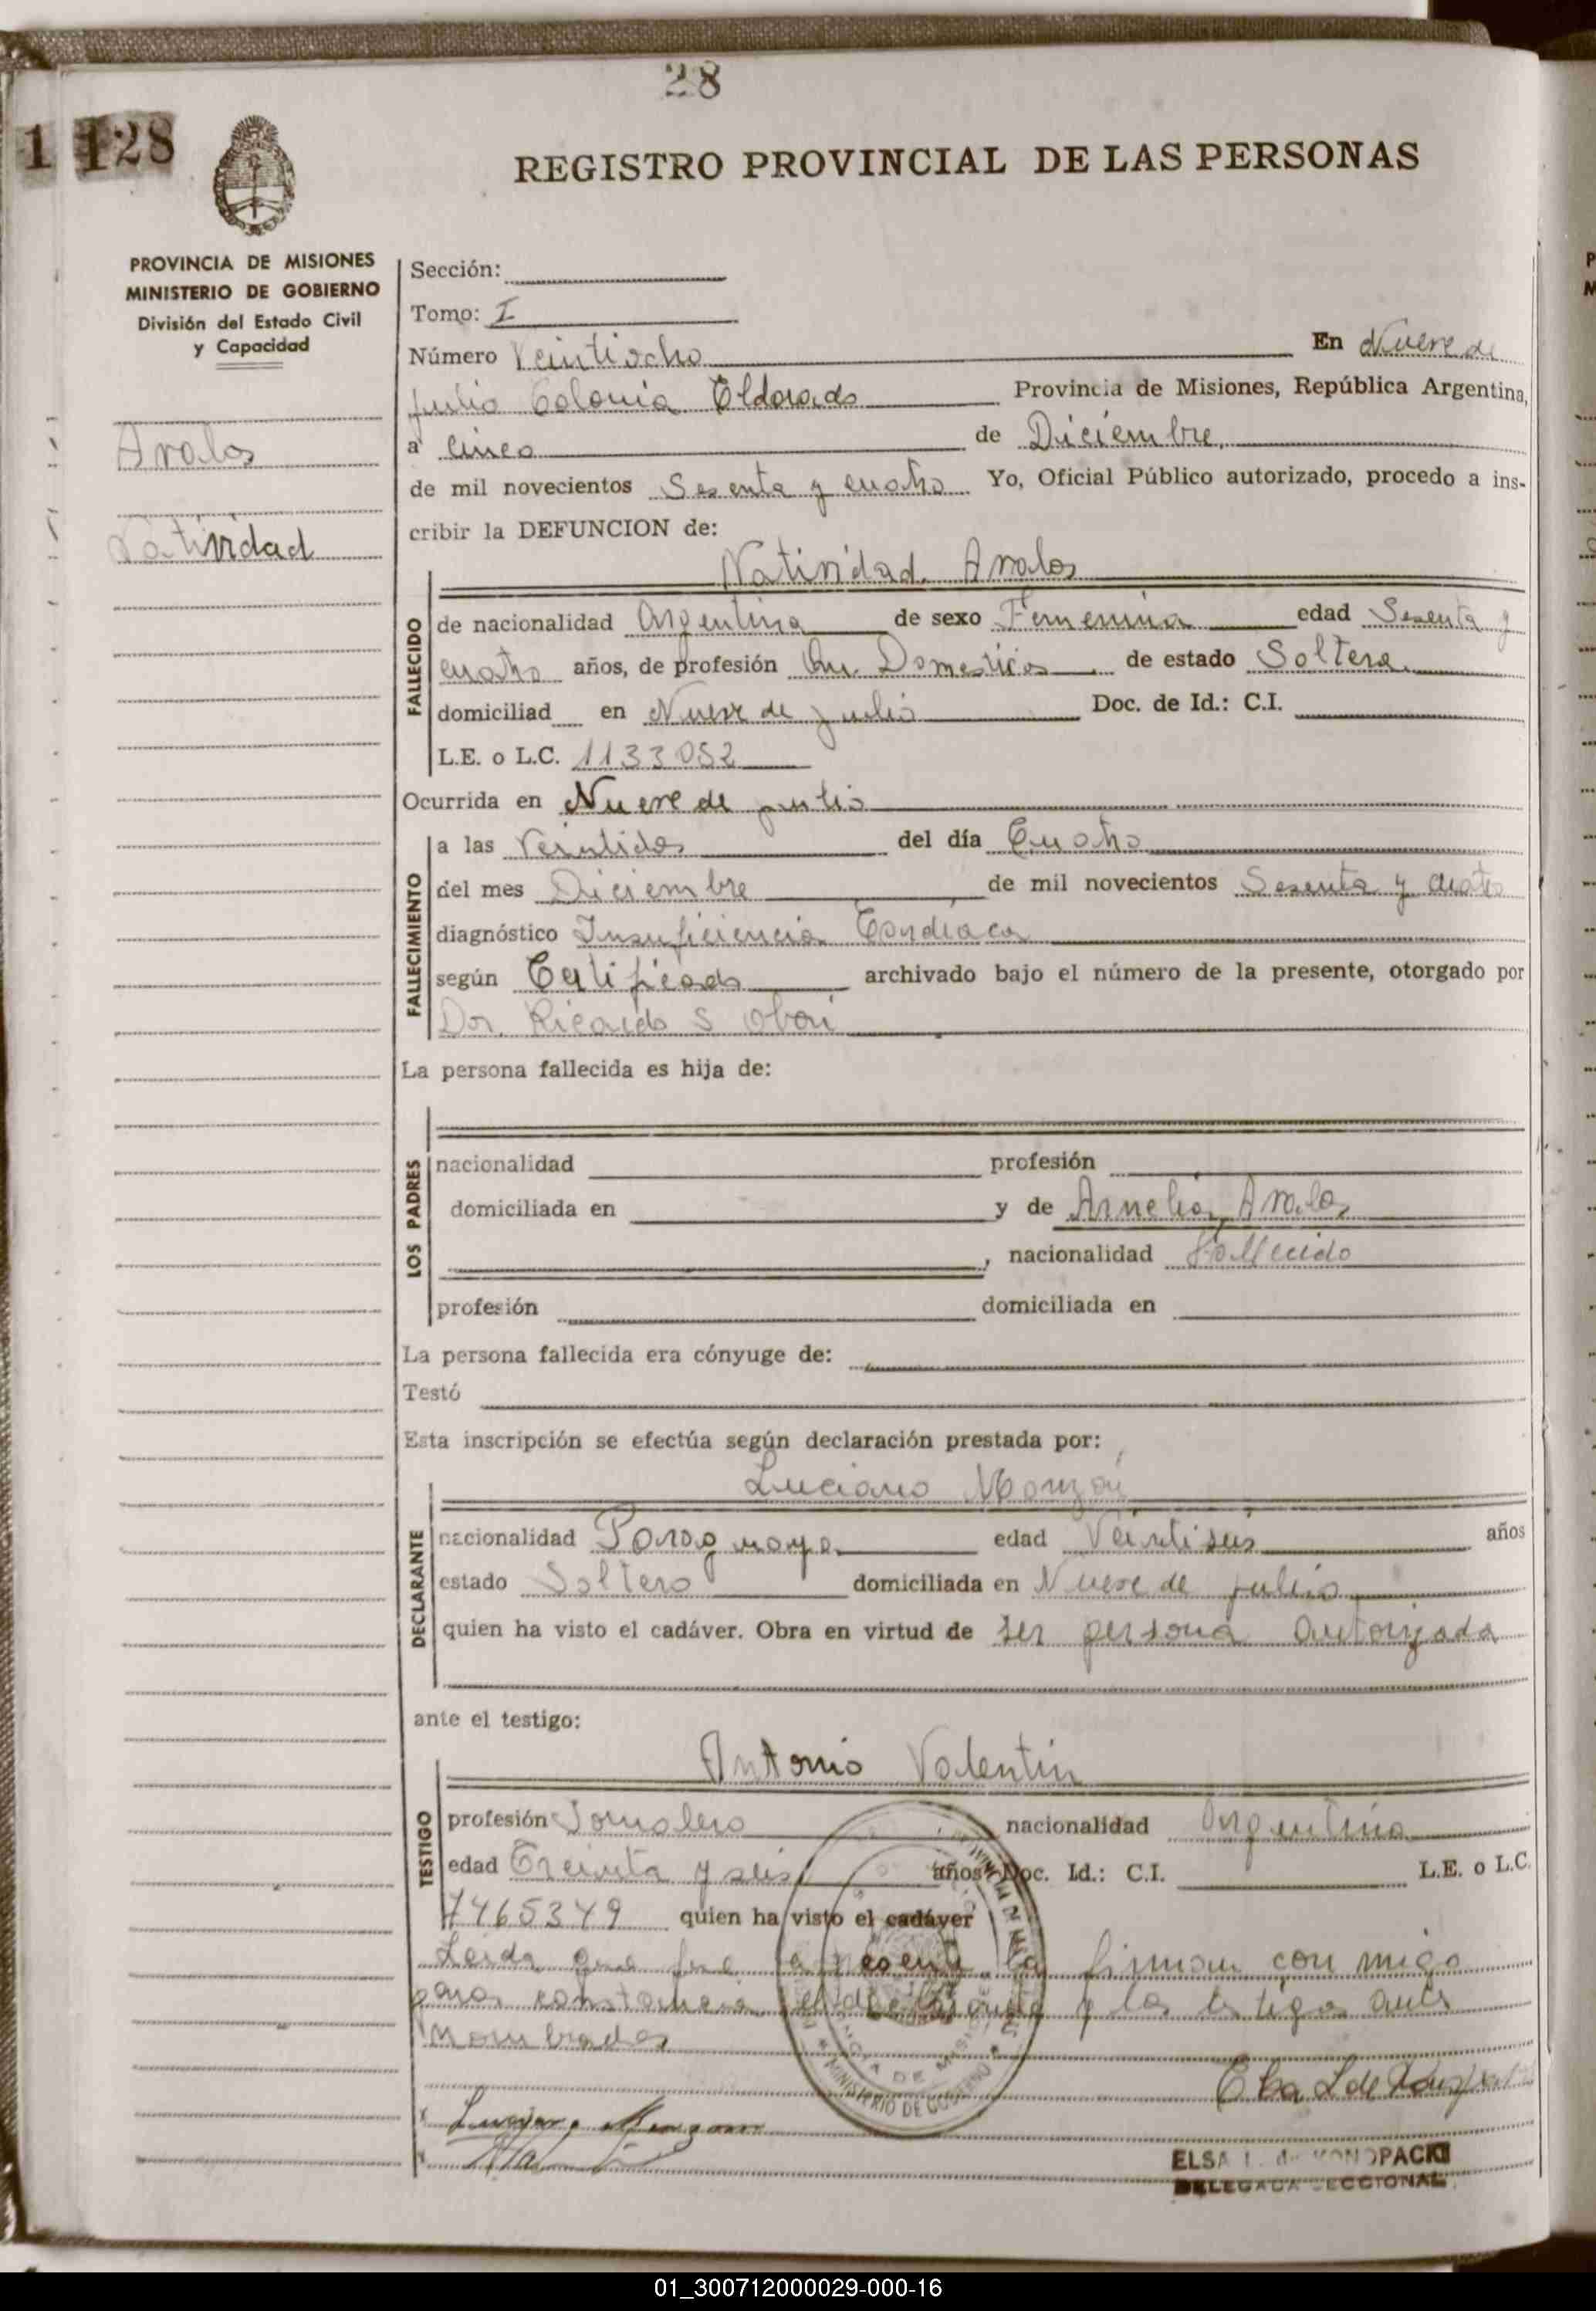 28
1 128
REGISTRO PROVINCIAL DE LAS PERSONAS
PROVINCIA DE MISIONES
MINISTERIO DE GOBIERNO
División del Estado Civil
y Capacidad
Avalos
Natividad
Sección:
Tomo: I
Número Veintiocho En Nueve de
julio Colonia Eldorado Provincia de Misiones, República Argentina,
a cinco de Diciembre,
de mil novecientos Sesenta y cuatro Yo, Oficial Público autorizado, procedo a ins-
cribir la DEFUNCION de:
Natividad Avalos
FALLECIDO
de nacionalidad Argentina de sexo Femenina edad Sesenta y
cuatro años, de profesión Domesticos de estado Soltera
domiciliad en Nueve de julio Doc. de Id.: C.I.
L.E. o L.C. 1133052
Ocurrida en Nueve de julio
FALLECIMIENTO
a las Veintidos del día Cuatro
del mes Diciembre de mil novecientos Sesenta y cuatro
diagnóstico Insuficiencia Cardiaca
según Certificado archivado bajo el número de la presente, otorgado por
Dr. Ricardo S
La persona fallecida es hija de:
LOS PADRES
nacionalidad profesión
domiciliada en y de Avalos
, nacionalidad Fallecido
profesión domiciliada en
La persona fallecida era cónyuge de:
Testó
Esta inscripción se efectúa según declaración prestada por:
Luciano Monzón
DECLARANTE
nacionalidad Paraguaya edad Veintiseis años
estado Soltero domiciliada en Nueve de julio
quien ha visto el cadáver. Obra en virtud de ser persona autorizada
ante el testigo:
Antonio Valentin
TESTIGO
profesión Jornalero nacionalidad Argentina
edad Treinta y seis años Doc. Id.: C.I. L.E. o L.C.
7465349 quien ha visto el cadáver
Leida que fue la presente la firman con migo
para constancia el declarante y los testigos antes
nombrados
MINISTERIO DE GOBIERNO
ELSA L. de KONOPACKI
DELEGADA SECCIONAL
01_300712000029-000-16